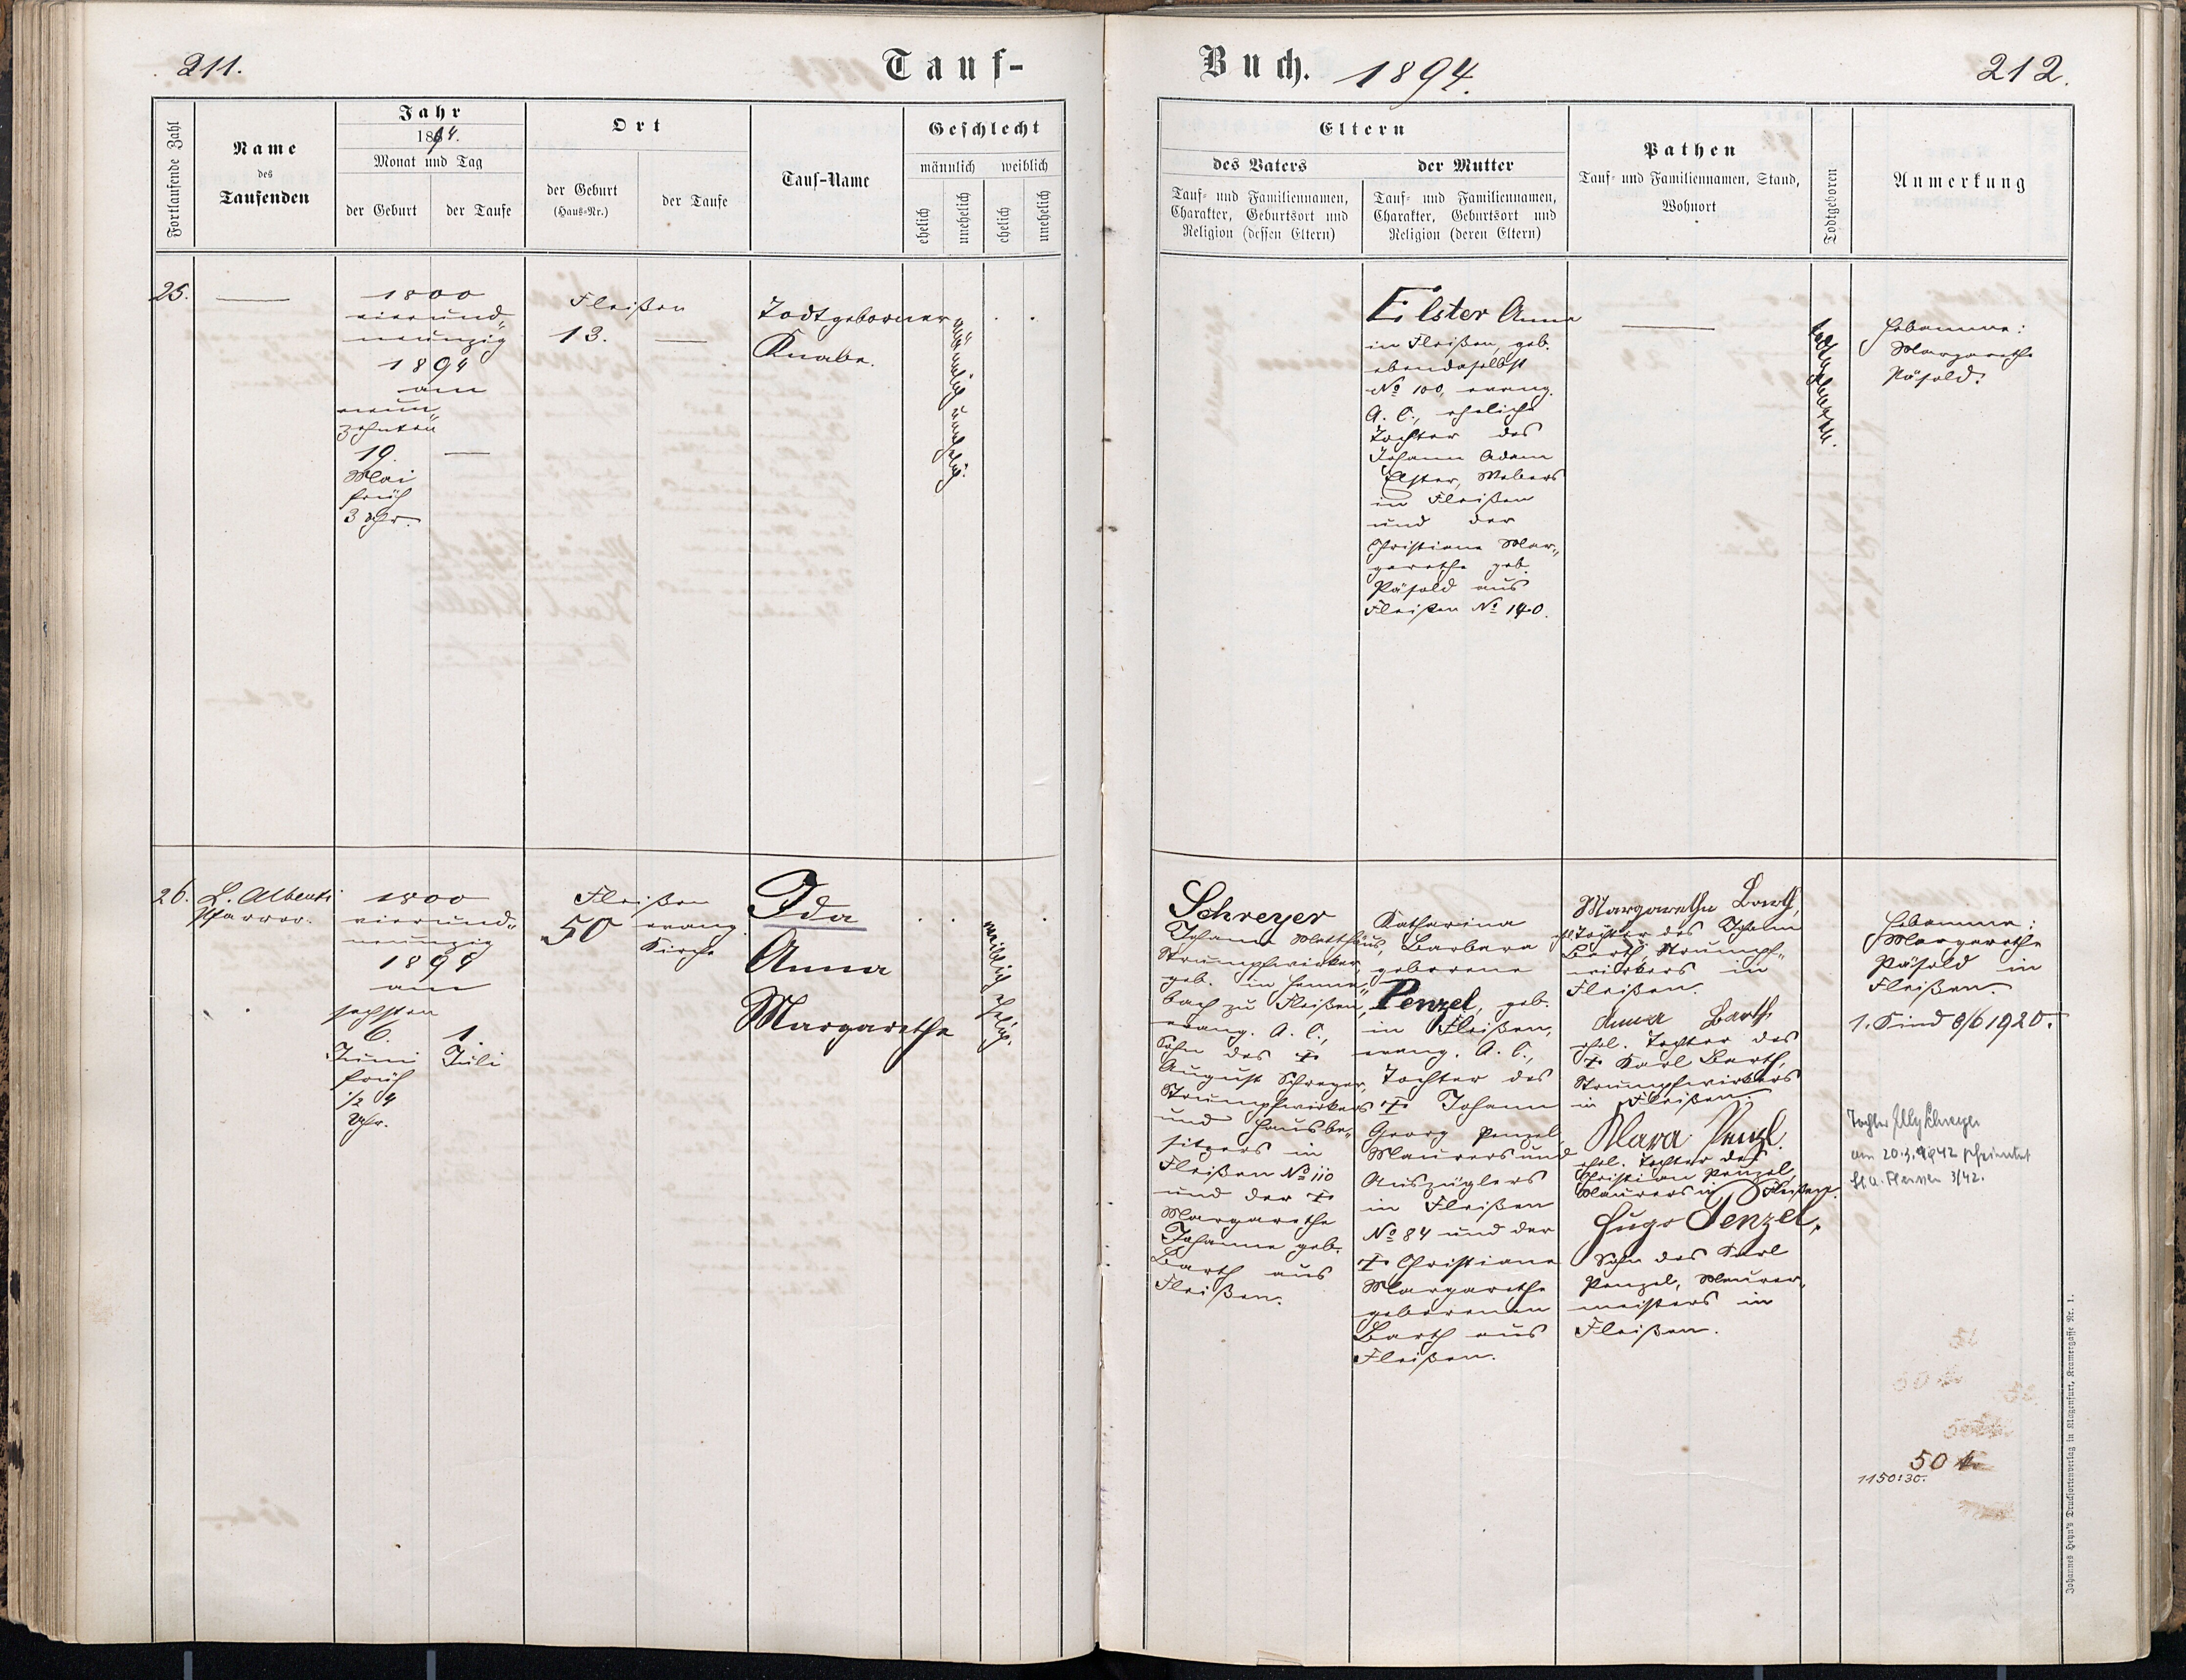 211.
Tauf-
Buch. 1894.
212.
Fortlaufende Zahl
Name
des
Taufenden
Jahr
1894.
Monat und Tag
der Geburt
der Taufe
Ort
der Geburt
(Haus-Nr.)
der Taufe
Tauf-Name
Geschlecht
männlich
weiblich
ehelich
unehelich
ehelich
unehelich
Eltern
des Vaters
Tauf- und Familiennamen,
Charakter, Geburtsort und
Religion (dessen Eltern)
der Mutter
Tauf- und Familiennamen,
Charakter, Geburtsort und
Religion (deren Eltern)
Pathen
Tauf- und Familiennamen, Stand,
Wohnort
Todtgeboren
Anmerkung
25.
1800
vierund„
neunzig
1894
am
neun„
zehnten
19.
Mai
früh
3 Uhr.
Fleißen
13.
Todtgeborner
Knabe.
männlich unehelich.
Elster Anna
in Fleißen, geb.
ebendaselbst
No 100, evang.
A. C., eheliche
Tochter des
Johann Adam
Elster, Webers
in Fleißen
und der
Christiana Mar„
garetha geb.
Päsold aus
Fleißen No 140.
todtgeboren.
Hebamme:
Margaretha
Päsold.
26.
L. Alberti
Pfarrer.
1800
vierund„
neunzig
1894
am
sechsten
6.
Juni
früh
1/2 4
Uhr.
1.
Juli
Fleißen
50
evang.
Kirche
Ida
Anna
Margaretha
weiblich ehelich.
Schreyer
Johann Matthäus,
Strumpfwirker,
geb. in Hann„
bach zu Fleißen,
evang. A. C.,
Sohn des †
August Schreyer,
Strumpfwirkers
und Hausbe„
sitzers in
Fleißen No 110
und der †
Margaretha
Johanna geb.
Barth aus
Fleißen.
Katharina
Barbara
geborene
Penzel, geb.
in Fleißen,
evang. A. C.,
Tochter des
† Johann
Georg Penzel,
Maurers und
Auszüglers
in Fleißen
No 84 und der
† Christiana
Margaretha
geborenen
Barth aus
Fleißen.
Margaretha Barth,
ehl. Tochter des Johann
Barth, Strumpf„
wirkers in
Fleißen.
Anna Barth
ehel. Tochter des
† Karl Barth,
Strumpfwirkers
in Fleißen.
Penzl.
ehel. Tochter des
Christian Penzel
Maurers in Fleißen.
Hugo Penzel,
Sohn des Karl
Penzel, Maurer„
meisters in
Fleißen.
Hebamme:
Margaretha
Päsold in
Fleißen.
1. Kind 8/6 1920.
Tochter Schreyer
am 20.3.1942
St.A. Fleissen 3/42.
50
1150:30.
Johannes Heyn's Drucksortenverlag in Klagenfurt, Kramergasse Nr. 1.